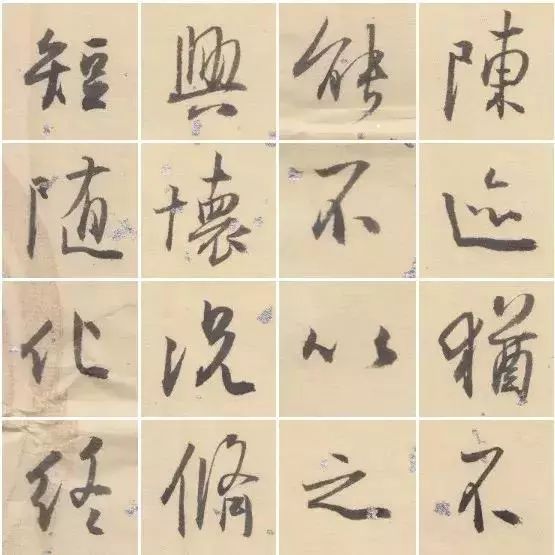 陳迹猶不
能不以之
興懷況脩
短随化終